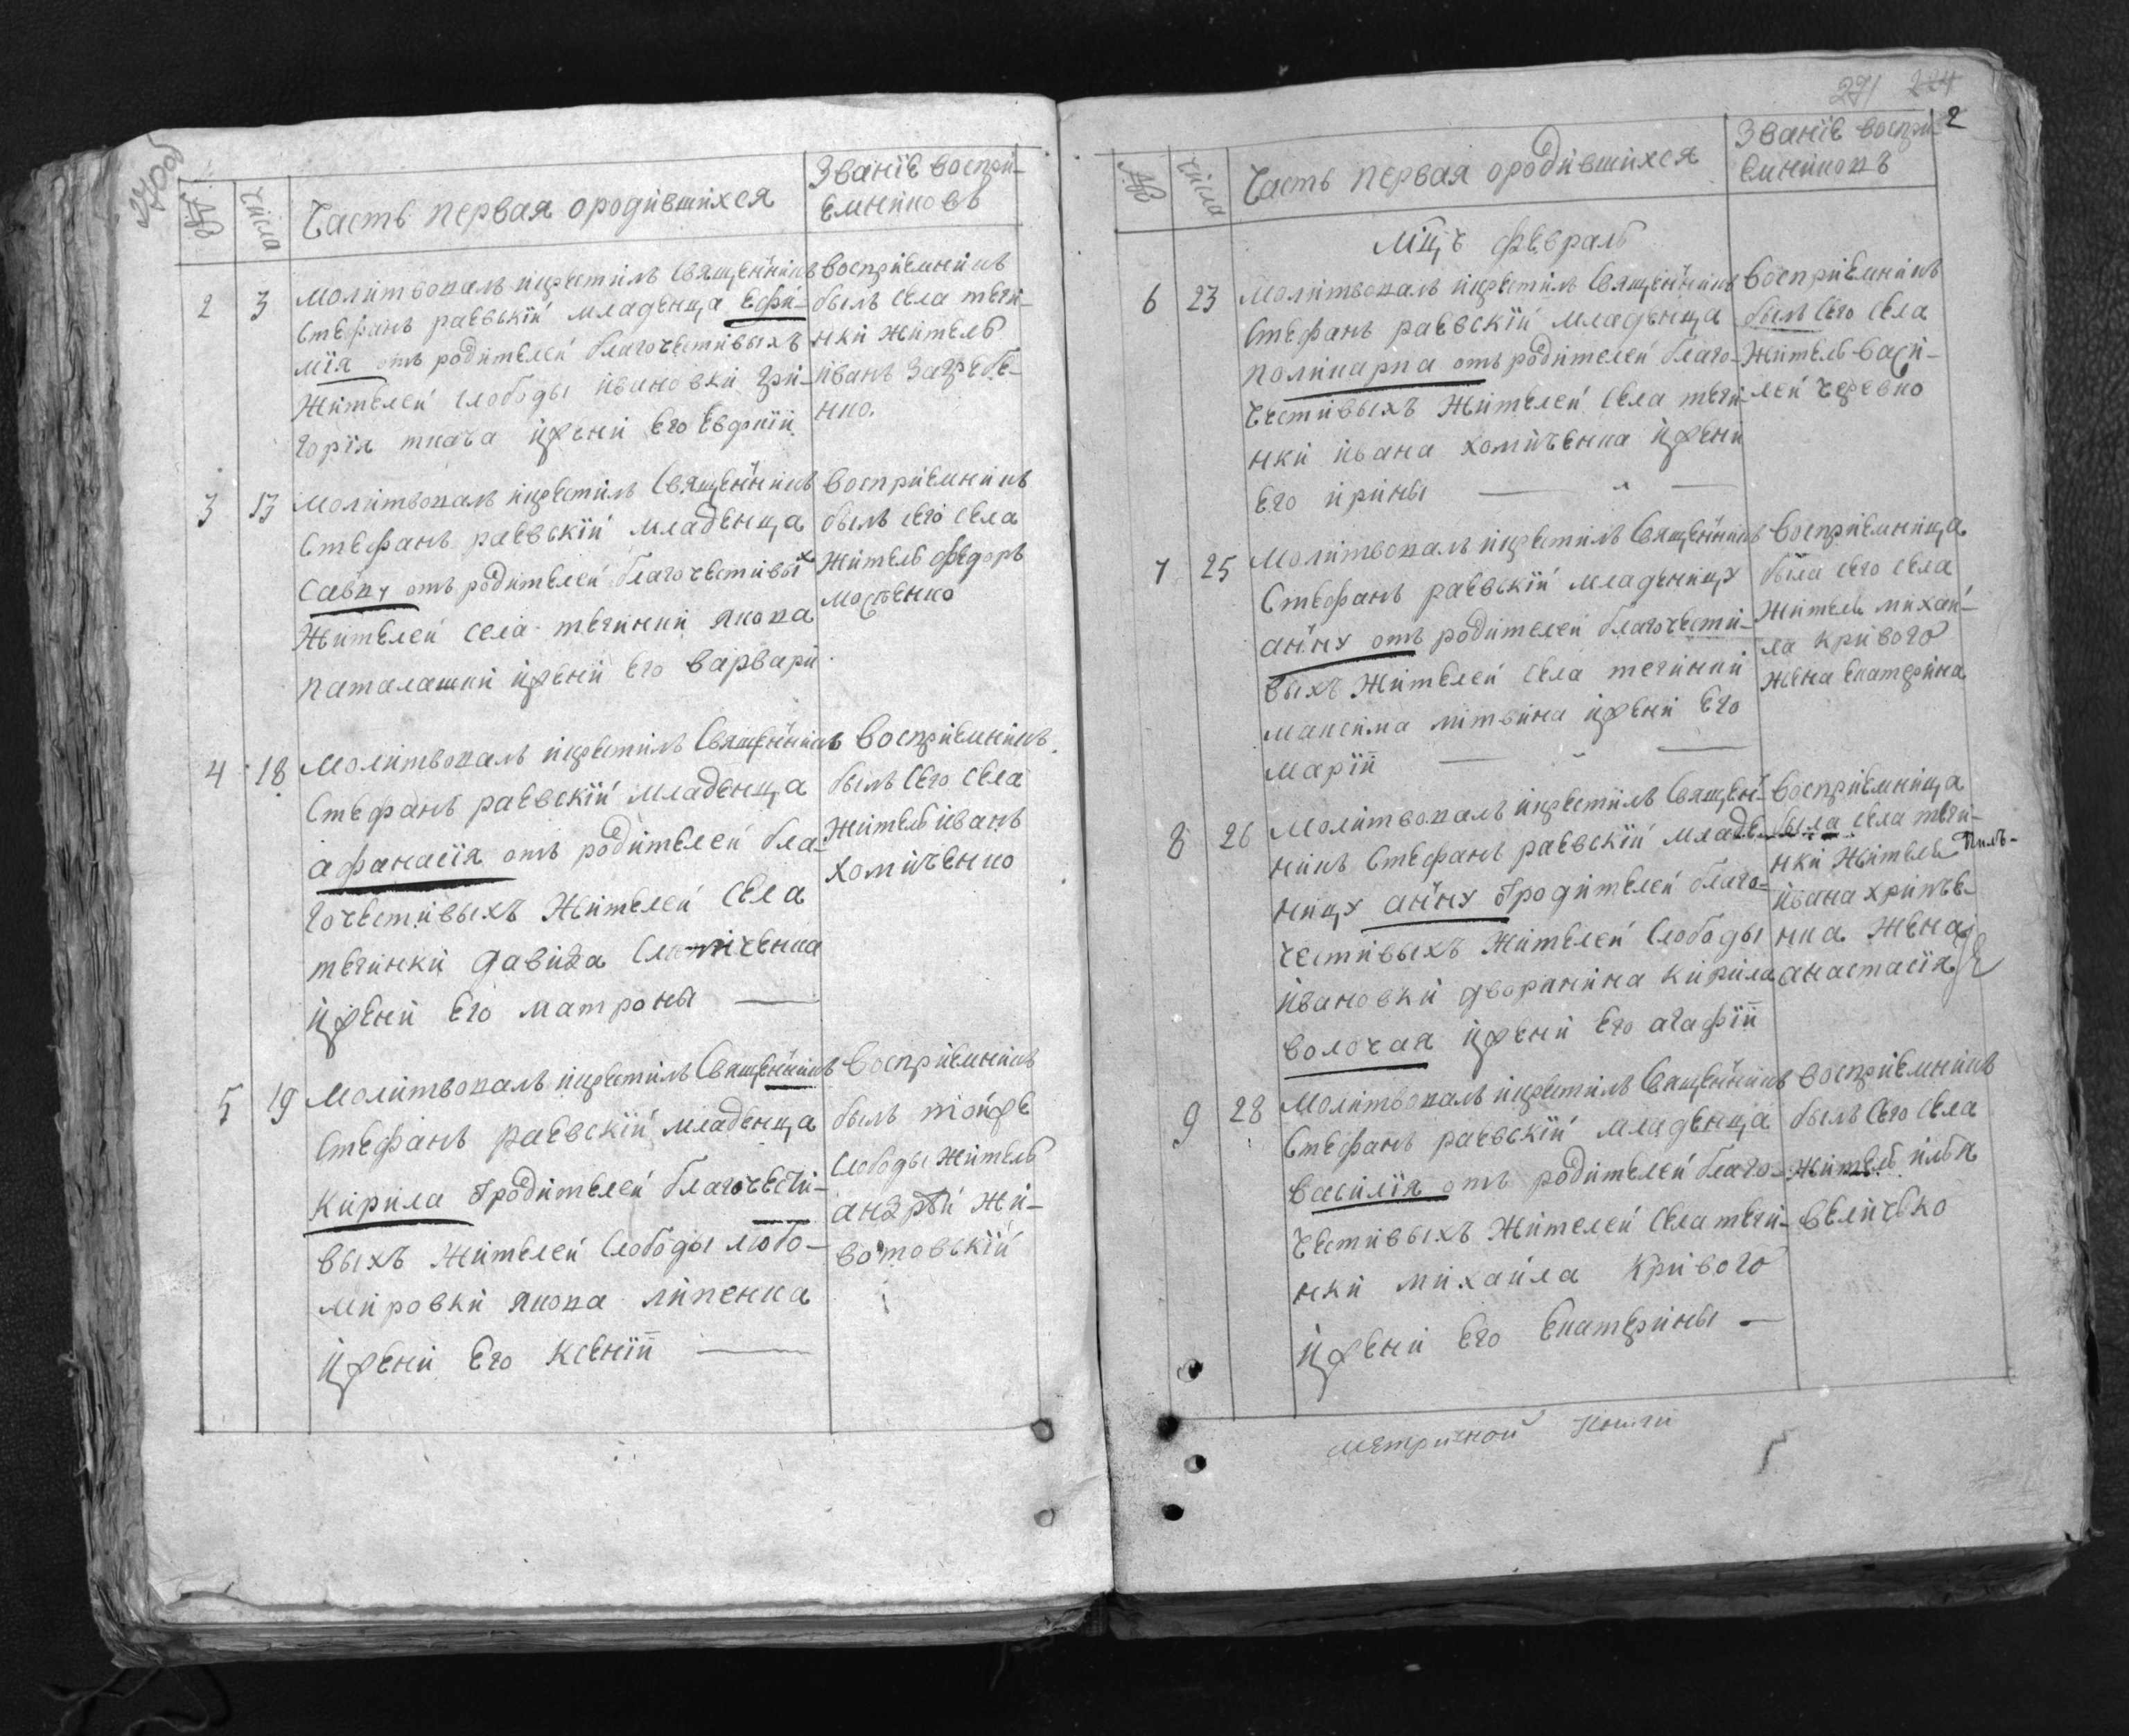 270об
№
числа
Часть первая ородившихся
Званїе воспри-
емниковъ
2
3
Молитвовалъ икрестилъ Священникъ
Стефанъ раевскїй младенца Ефи-
мїя отъ родителей благочестивыхъ
Жителей слободы ивановки гри-
горїя ткача ижени его Евфимїи
воспрїемникъ
былъ села теги-
нки житель
иванъ Загребе-
нко.
3
13
Молитвовалъ икрестилъ Священникъ
Стефанъ раевскїй младенца
Савку отъ родителей благочестивых
Жителей села тегинки якова
паталашки ижени его варвари
воспрїемникъ
былъ сего села
житель федоръ
4
18
Молитвовалъ икрестилъ Священникъ
Стефанъ раевскїй младенца
афанасїя отъ родителей бла-
гочестивыхъ Жителей села
тегинки давида
ижени его матроны
воспрїемникъ
былъ сего села
житель иванъ
хомиченко
5
19
Молитвовалъ икрестилъ Священникъ
Стефанъ раевскїй младенца
кирила ѿродителей благочести-
выхъ жителей слободы любо-
мировки якова липенка
ижени его ксенїи
воспрїемникъ
былъ тойже
слободы житель
андрѣй жи-
вотовскїй
271 224
2
№
числа
Часть первая ородившихся
Званїе воспри-
емниковъ
Мцъ февраль
6
23
Молитвовалъ икрестилъ Священникъ
Стефанъ раевскїй младенца
поликарпа отъ родителей благо-
честивыхъ жителей села теги-
нки ивана хомиченка ижени
его ирины
воспрїемникъ
былъ сего села
житель васи-
лей черевко
7
25
Молитвовалъ икрестилъ Священникъ
Стефанъ раевскїй младеницу
анну отъ родителей благочести-
выхъ жителей села тегинки
максима литвина ижени его
марїи
воспрїемница
была сего села
жителя михай-
ла кривого
жена екатерина
8
26
Молитвовалъ икрестилъ Священ-
никъ Стефанъ раевскїй младе-
ницу анну ѿродителей благо-
честивыхъ жителей слободы
ивановки дворанина кирила
волочая ижени его агафїи
воспрїемница
была села теги-
нки жителя
ивана хрипче-
нка жена
анастасїя
9
28
Молитвовалъ икрестилъ Священникъ
Стефанъ раевскїй младенца
василїя отъ родителей благо-
честивыхъ жителей села теги-
нки михайла кривого
ижени его екатерины
воспрїемникъ
былъ сего села
житель илья
величко
метричной книги